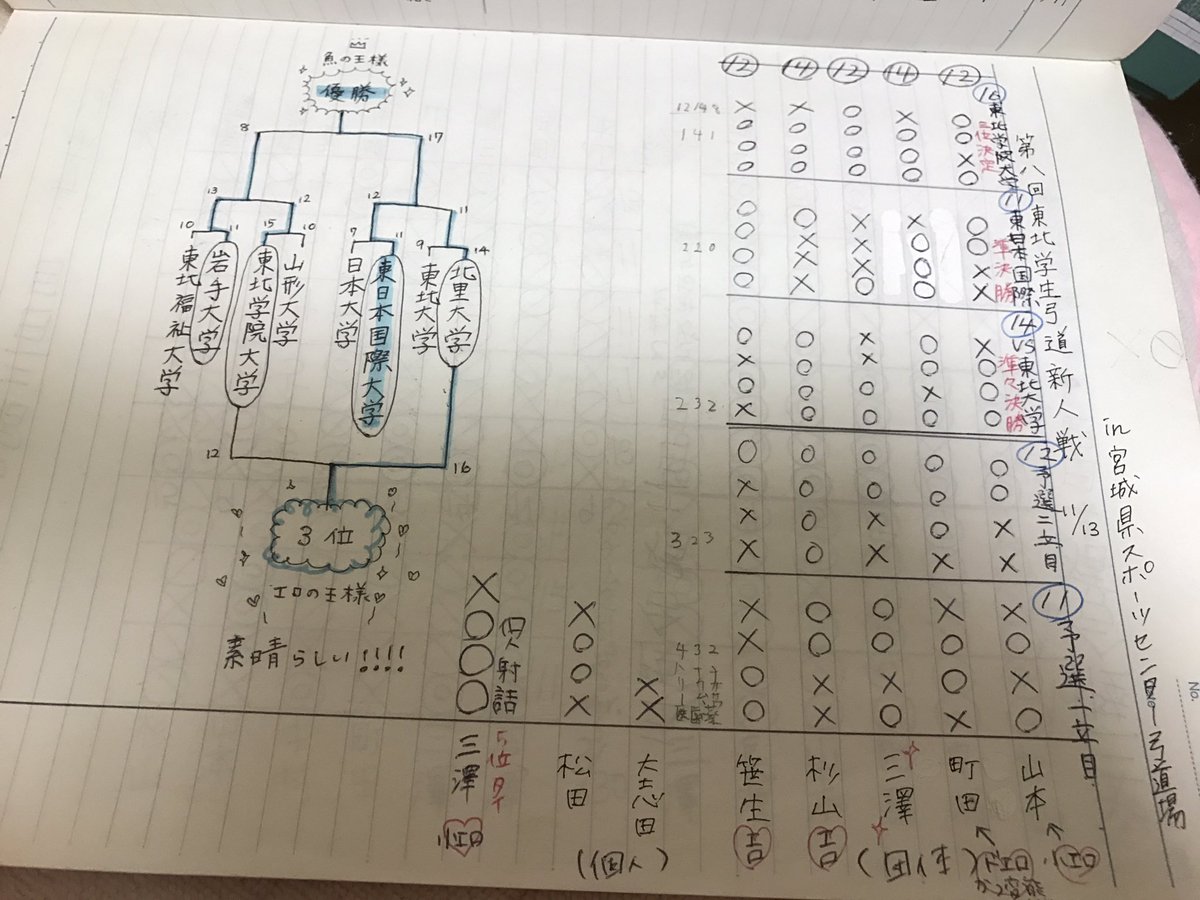 第八回東北学生弓道新人戦 11/13
in 宮城県スポーツセンター弓道場
⑪ 予選一立目
⑫ 予選二立目
⑭ VS東北大学
準々決勝
⑪ 東日本国際
準決勝
⑯ 東北学院大学
三位決定
⑫ ⑭ ⑫ ⑭ ⑫
× × ○ × ○
○ ○ ○ ○ ○
○ ○ ○ ○ ×
○ ○ ○ ○ ○
○ ○ × × ○
○ × × ○ ○
○ × × ○ ×
○ × ○ ○ ×
○ ○ × ○ ×
× ○ × ○ ○
○ ○ ○ × ○
× ○ ○ ○ ○
○ ○ ○ ○ ○
× ○ ○ ○ ○
× ○ × ○ ×
× ○ × × ×
× ○ ○ × ×
× ○ ○ ○ ○
○ × × ○ ×
○ × ○ × ○
1 4 1
2 2 0
2 3 2
3 2 3
4 3 2
山本
町田
三澤
杉山
笹生
(団体)
小エロ
ドエロ
大志田
× ×
松田
× ○ ○ ×
三澤
× ○ ○ ○
射詰
5位タイ
(個人)
魚の王様
優勝
8 17
13 12 12 11
10 11 15 10 7 11 9 14
東北福祉大学
岩手大学
東北学院大学
山形大学
日本大学
東日本国際大学
東北大学
北里大学
12 16
3位
エロの王様
素晴らしい!!!!
No.